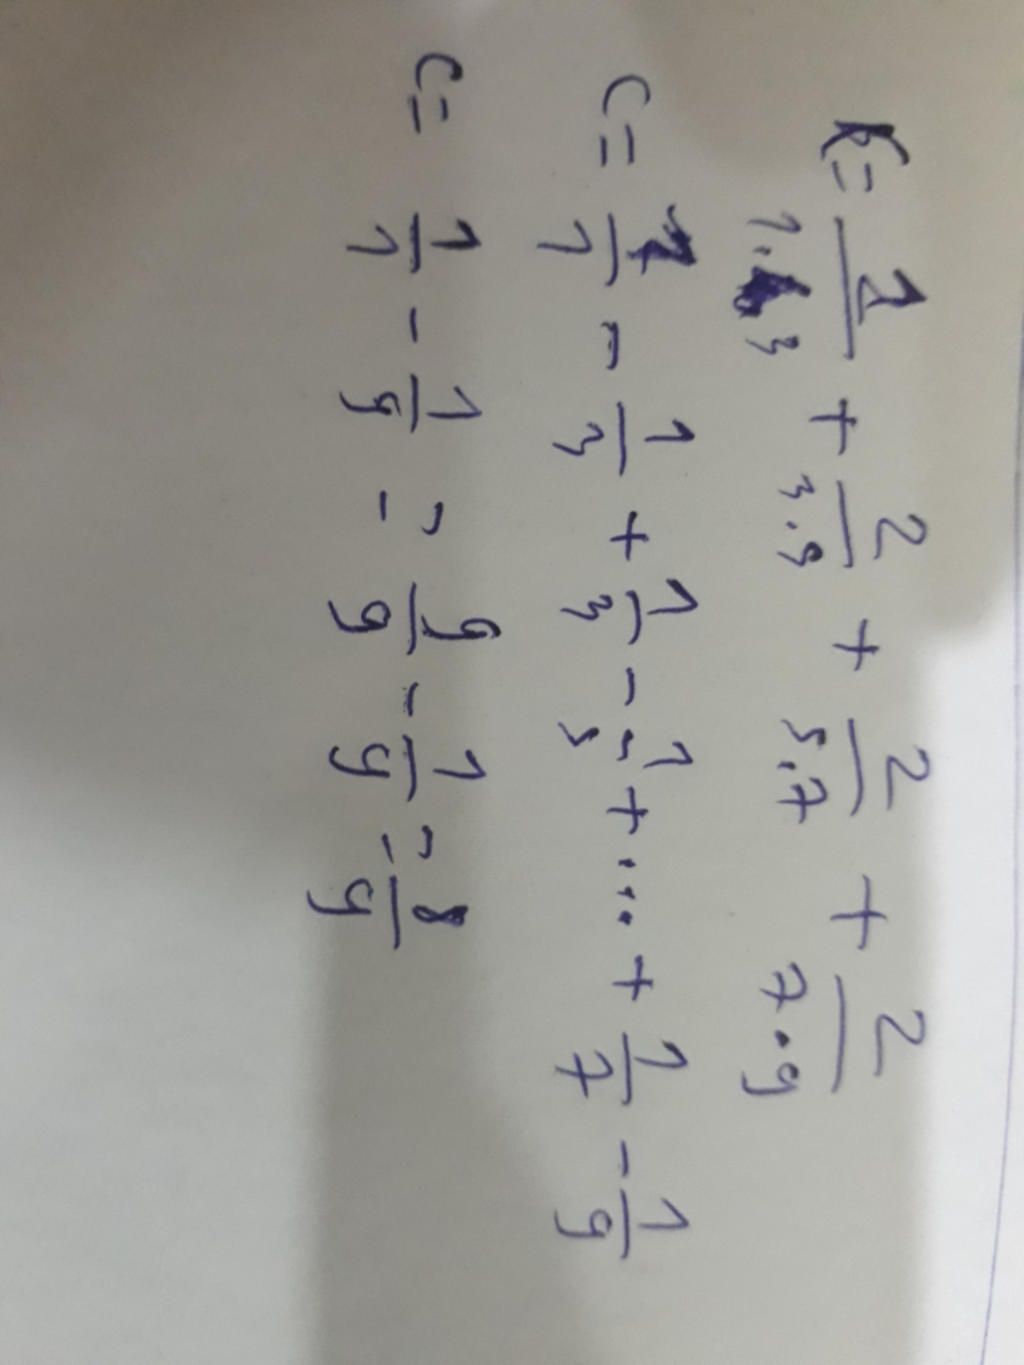 C = 1/1.3 + 2/3.9 + 2/5.7 + 2/7.9
C = 1/1 - 1/3 + 1/3 - 1/5 + ... + 1/7 - 1/9
C = 1/1 - 1/9 = 9/9 - 1/9 = 8/9